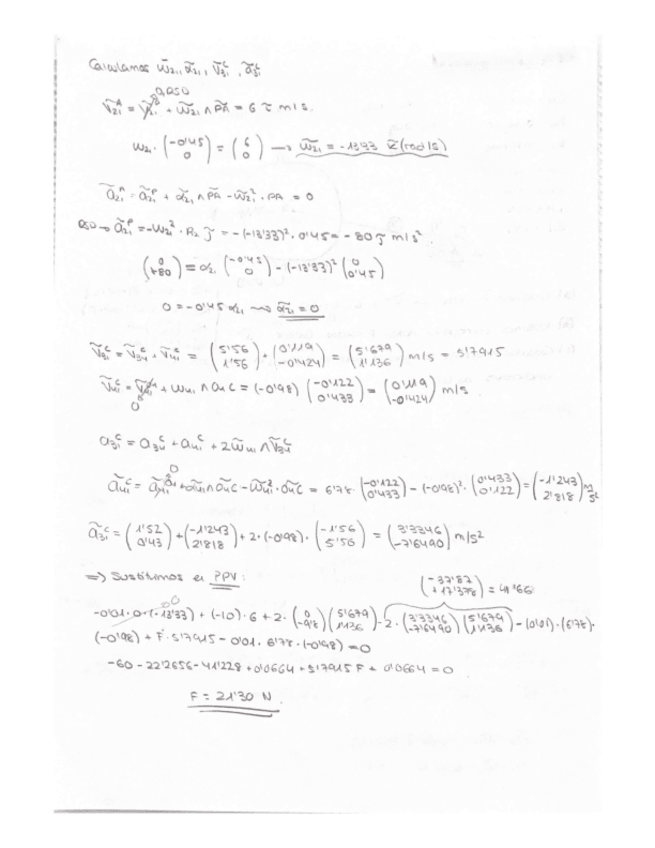 Calculamos ω̄₂₁, ᾱ₂₁, V̄₃₁ᶜ, ā₃₁ᶜ
RSD
V̄₂₁ᴬ = V̄₂₁ᴾ + ω̄₂₁ ∧ P̄Ā = 6 ῑ m/s.
0
ω₂₁ · (-0'45 / 0) = (6 / 0) → ω̄₂₁ = -13'33 k̄ (rad/s)
ā₂₁ᴬ = ā₂₁ᴾ + ᾱ₂₁ ∧ P̄Ā - ω̄₂₁² · PA = 0
RSD → ā₂₁ᴾ = -ω₂₁² · R₂ j̄ = -(-13'33)² · 0'45 = -80 j̄ m/s²
(0 / +80) = α₂₁ (-0'45 / 0) - (-13'33)² (0 / 0'45)
0 = -0'45 α₂₁ → ᾱ₂₁ = 0
V̄₃₁ᶜ = V̄₃₄ᶜ + V̄₄₁ᶜ = (5'56 / 1'56) + (0'119 / -0'424) = (5'679 / 1'136) m/s = 5'7915
V̄₄₁ᶜ = V̄₄₁ + ω₄₁ ∧ O₄C = (-0'98) (-0'122 / 0'433) = (0'119 / -0'424) m/s
0
a₃₁ᶜ = a₃₄ᶜ + a₄₁ᶜ + 2ω̄₄₁ ∧ V̄₃₄ᶜ
0
ā₄₁ᶜ = ā₄₁ + ᾱ₄₁ ∧ O₄C - ω̄₄₁² · O₄C = 6'78 · (-0'122 / 0'433) - (-0'98)² · (0'433 / 0'122) = (-1'243 / 2'818) m/s²
ā₃₁ᶜ = (1'52 / 0'43) + (-1'243 / 2'818) + 2 · (-0'98) · (-1'56 / 5'56) = (3'3346 / -7'6490) m/s²
⇒ Sustituimos en PPV:
(-37'87 / +17'378) = 41'66
0
-0'01 · 0 · (-13'33) + (-10) · 6 + 2 · (0 / -9'8) (5'679 / 1'136) - 2 · (3'3346 / -7'6490) (5'679 / 1'136) - (0'01) · (6'78) ·
(-0'98) + F · 5'7915 - 0'01 · 6'78 · (-0'98) = 0
-60 - 22'2656 - 41'228 + 0'0664 + 5'7915 F + 0'0664 = 0
F = 21'30 N.